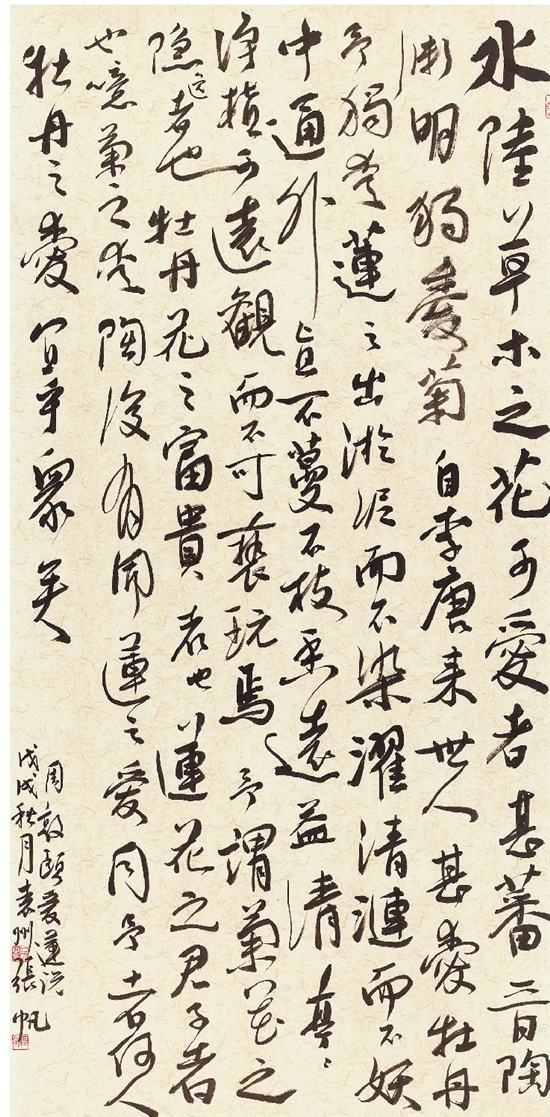 水陸草木之花可愛者甚蕃晉陶
淵明獨愛菊自李唐来世人甚愛牡丹
予獨愛蓮之出淤泥而不染濯清漣而不妖
中通外直不蔓不枝香遠益清亭〻
淨植可遠觀而不可褻玩焉予謂菊花之
隐逸者也牡丹花之富貴者也蓮花之君子者
也噫菊之愛陶後有聞蓮之愛同予者何人
牡丹之愛宜乎眾矣
周敦頤愛蓮说
戊戌秋月袁州張帆